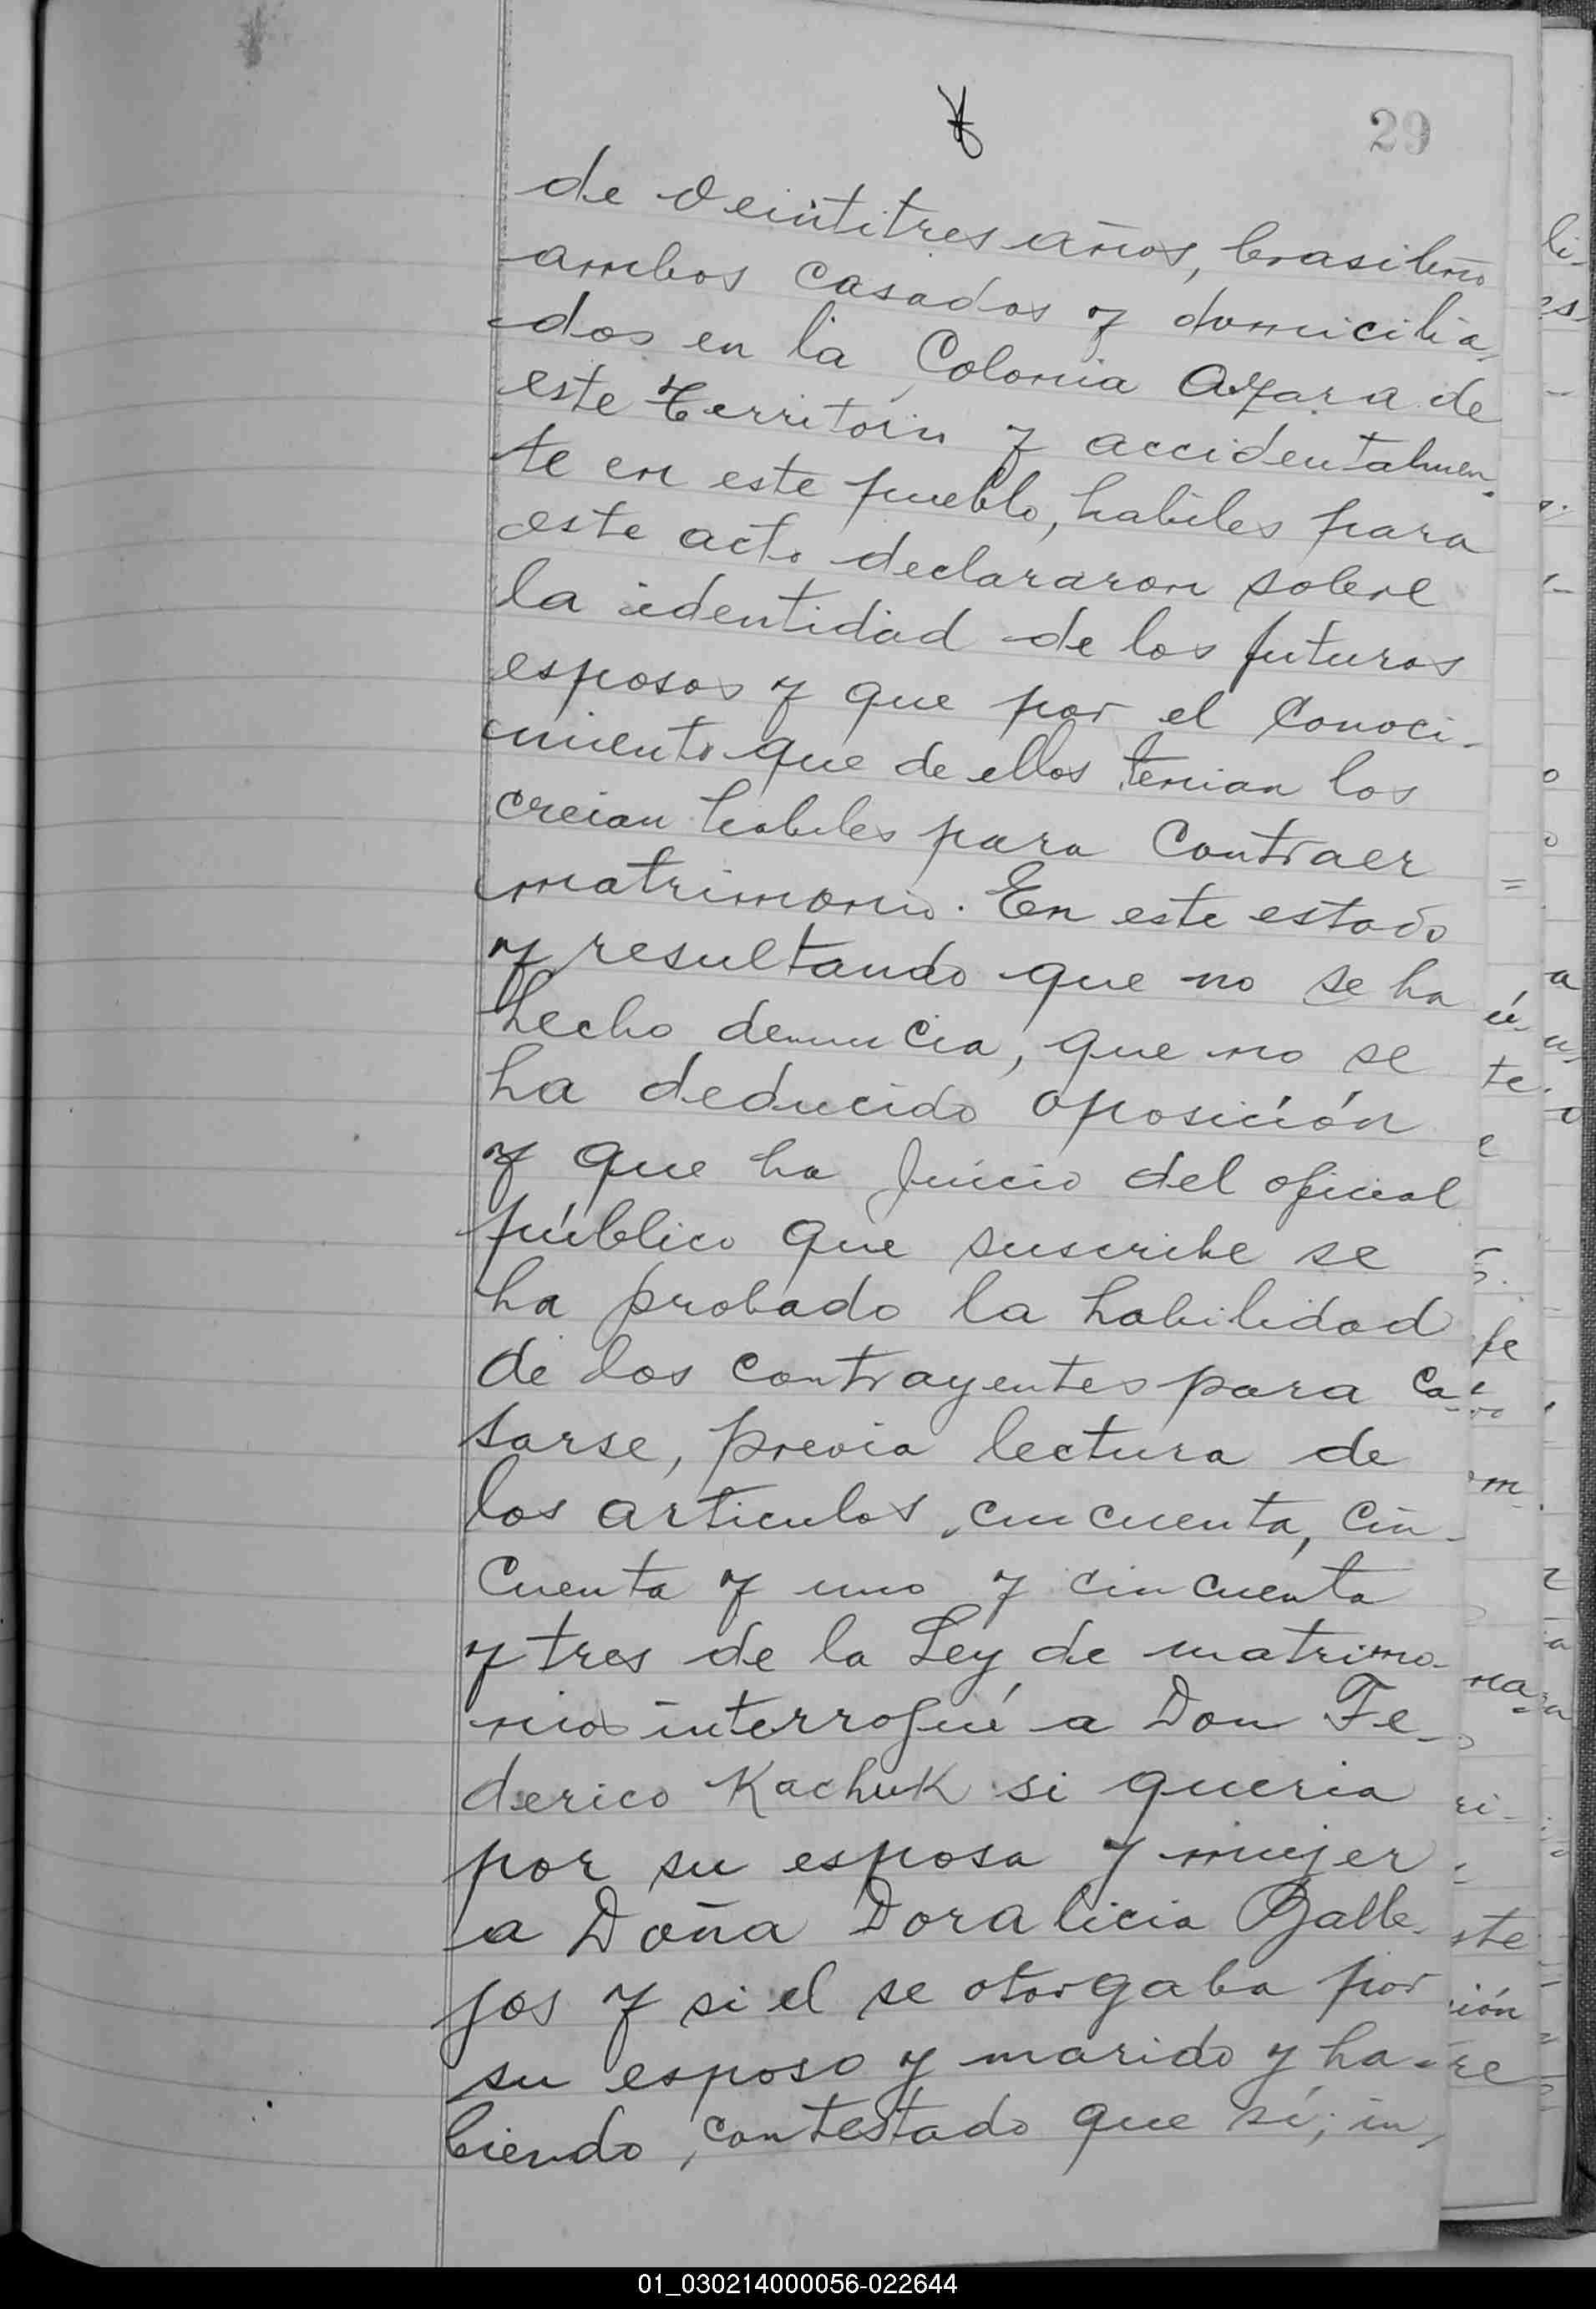 29
de veintitres años, brasileño
ambos casados y domicilia-
dos en la Colonia Azara de
este territorio y accidentalmen-
te en este pueblo, habiles para
este acto declararon sobre
la identidad de los futuros
esposos y que por el conoci-
miento que de ellos tenian los
creian habiles para contraer
matrimonio. En este estado
y resultando que no se ha
hecho denuncia, que no se
ha deducido oposición
y que ha juicio del oficial
público que suscribe se
ha probado la habilidad
de los contrayentes para ca-
sarse, previa lectura de
los articulos, cincuenta, cin-
cuenta y uno y cincuenta
y tres de la Ley de matrimo-
nios interrogué a Don Fe-
derico Kachuk si queria
por su esposa y mujer
a Doña Doralicia Galle-
jos y si el se otorgaba por
su esposo y marido y ha-
biendo, contestado que sí; in-
01_030214000056-022644